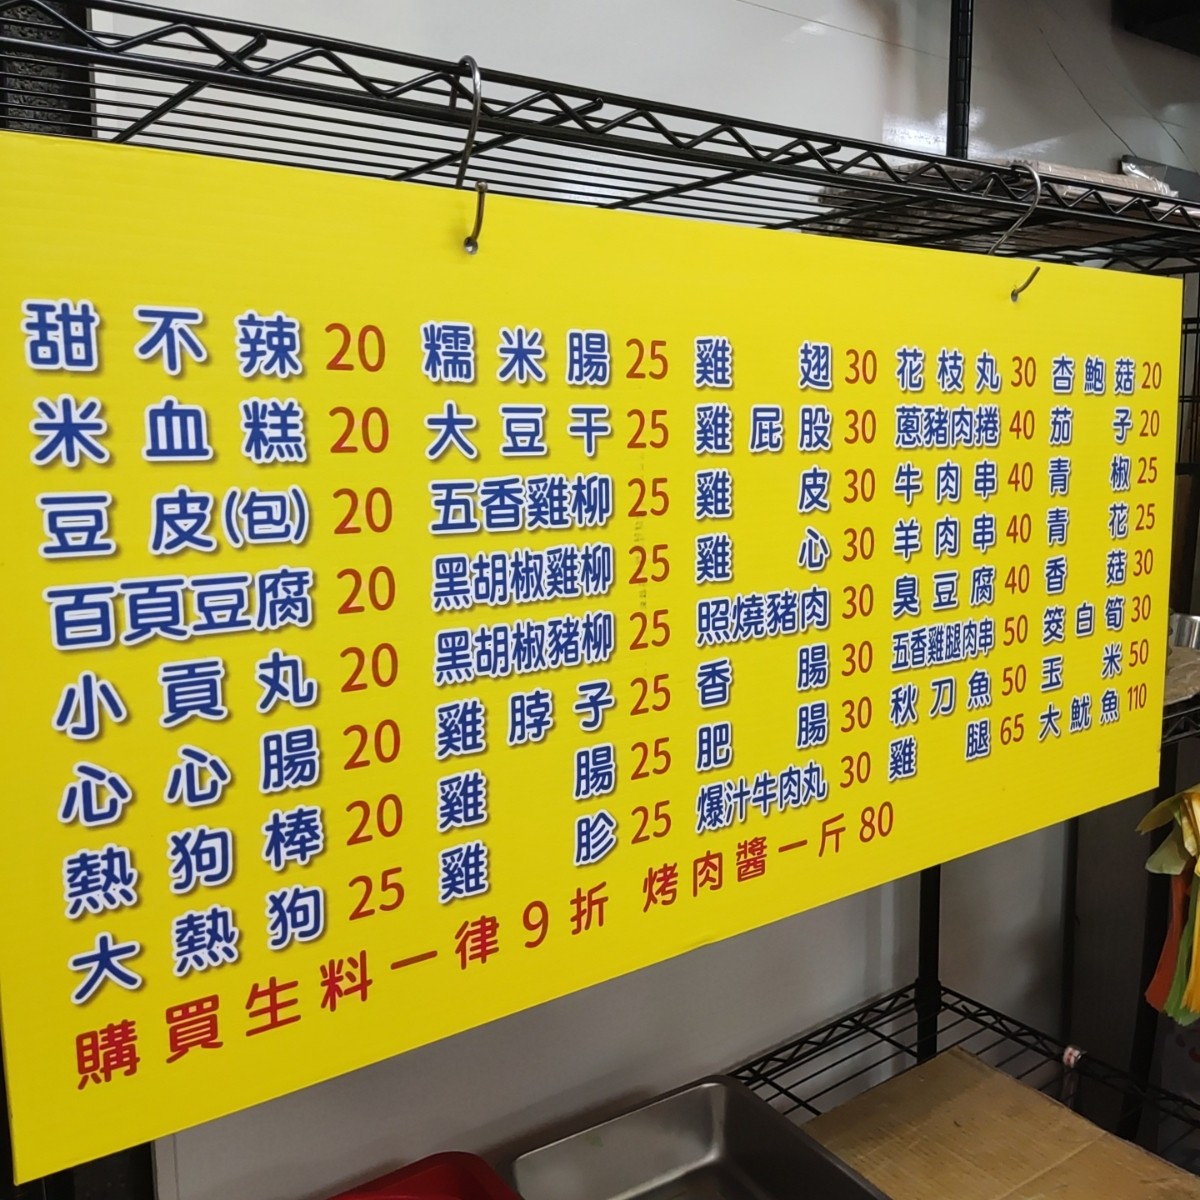 甜不辣 20 糯米腸 25 雞翅 30 花枝丸 30 杏鮑菇 20
米血糕 20 大豆干 25 雞屁股 30 蔥豬肉捲 40 茄子 20
豆皮(包) 20 五香雞柳 25 雞皮 30 牛肉串 40 青椒 25
百頁豆腐 20 黑胡椒雞柳 25 雞心 30 羊肉串 40 青花 25
小貢丸 20 黑胡椒豬柳 25 照燒豬肉 30 臭豆腐 40 香菇 30
心心腸 20 雞脖子 25 香腸 30 五香雞腿肉串 50 筊白筍 30
熱狗棒 20 雞腸 25 肥腸 30 秋刀魚 50 玉米 50
大熱狗 25 雞胗 25 爆汁牛肉丸 30 雞腿 65 大魷魚 110
購買生料一律9折 烤肉醬一斤80